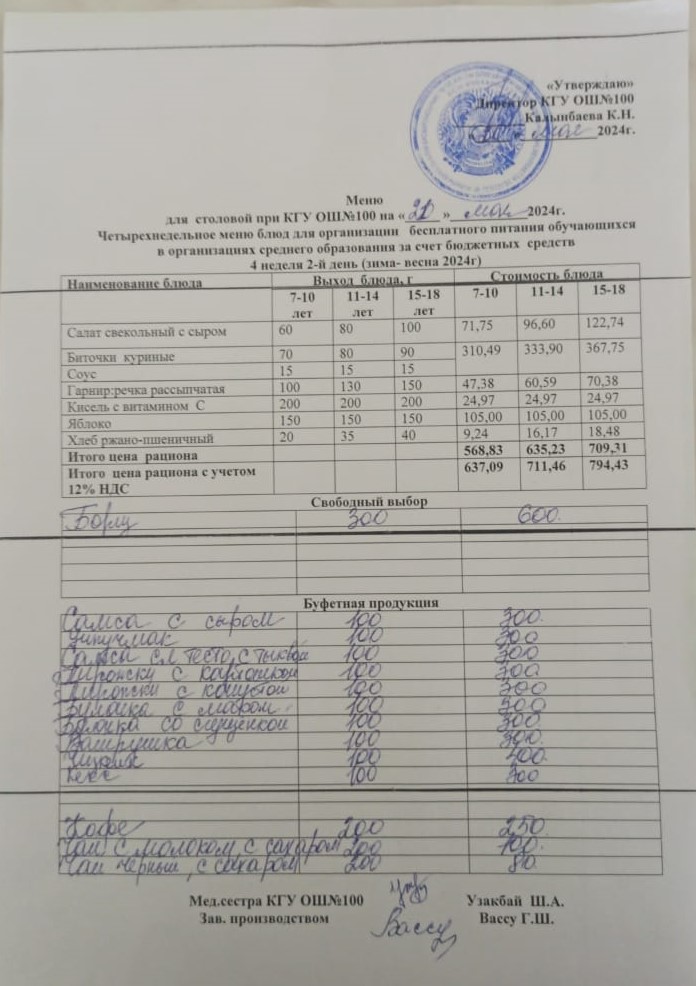 «Утверждаю»
Директор КГУ ОШ№100
Калынбаева К.Н.
«20» мая 2024г.
Меню
для столовой при КГУ ОШ№100 на « » мая 2024г.
Четырехнедельное меню блюд для организации бесплатного питания обучающихся
в организациях среднего образования за счет бюджетных средств
4 неделя 2-й день (зима- весна 2024г)
Наименование блюда Выход блюда, г Стоимость блюда
7-10 лет 11-14 лет 15-18 лет 7-10 11-14 15-18
Салат свекольный с сыром 60 80 100 71,75 96,60 122,74
Биточки куриные 70 80 90 310,49 333,90 367,75
Соус 15 15 15
Гарнир:гречка рассыпчатая 100 130 150 47,38 60,59 70,38
Кисель с витамином С 200 200 200 24,97 24,97 24,97
Яблоко 150 150 150 105,00 105,00 105,00
Хлеб ржано-пшеничный 20 35 40 9,24 16,17 18,48
Итого цена рациона 568,83 635,23 709,31
Итого цена рациона с учетом 637,09 711,46 794,43
12% НДС
Свободный выбор
Борщ 300 600
Буфетная продукция
Самса с сыром 100 300
100 300
Самса сл тесто с тыквой 100 300
Пирожки с картошкой 100 200
Пирожки с капустой 100 300
Булочка с 100 300
Булочка со сгущенкой 100 300
Ватрушка 100 300
100 400
Кекс 100
Кофе 200 250
Чай с молоком, с сахаром 200 100
Чай черный, с сахаром 200 80
Мед.сестра КГУ ОШ№100 Узакбай Ш.А.
Зав. производством Вассу Вассу Г.Ш.